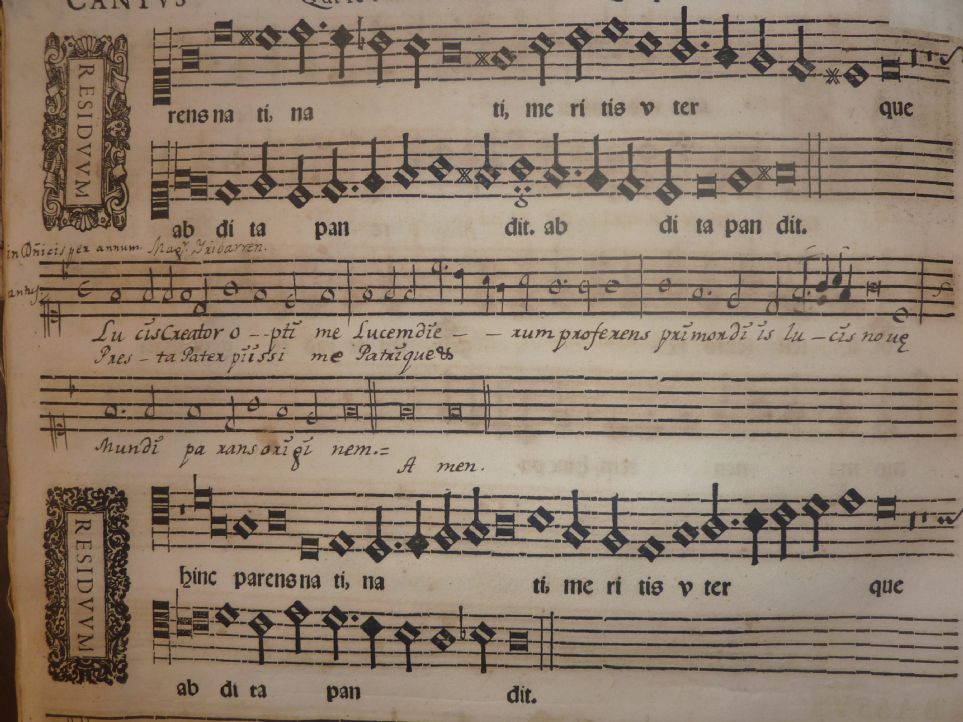 CANTVS
RESIDVVM
rens na ti, na ti, me ri tis v ter que
ab di ta pan dit. ab di ta pan dit.
in Dñicis per annum. Mag.r Yribarren.
antus
Lu cis Creator o--pti me Lucem die - - rum proferens primordi is lu-cis nouę
Pres-ta Pater piissi me Patrique
Mundi pa rans origi nem.=
A men.
RESIDVVM
hinc parens na ti, na ti, me ri tis v ter que
ab di ta pan dit.